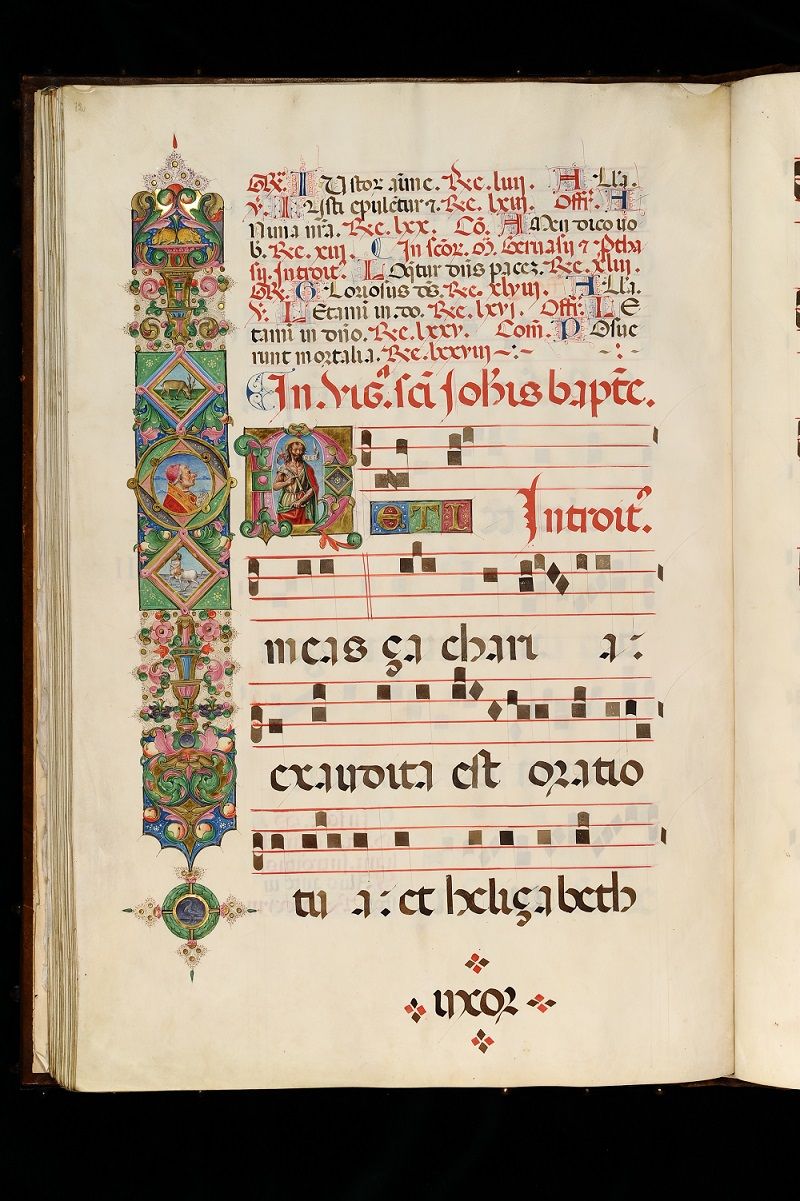 GR. IUstor anime. Re. liiii. A Lla.
V. IUsti epulentur &. Re. lxiii. Offi. A
Nima nra. Re. lxx. Co. A Men dico uo
b. Re. xiii. C In scor. M. Geruasii & Ptha
sii. Introit. LOqtur dns pacez. Re. xliii.
GR. GLoriosus ds. Re. xlviii. A Lla.
V. LEtami in. do. Re. lxvi. Offi. LE
tami in dno. Re. lxxv. Com. P Osue
runt mortalia. Re. lxxviii
C In. Vig.a sci Johis bapte.
NE
ATI Introit.
meas ça chari a:
exaudita est oratio
tu a: et heliçabeth
uxor